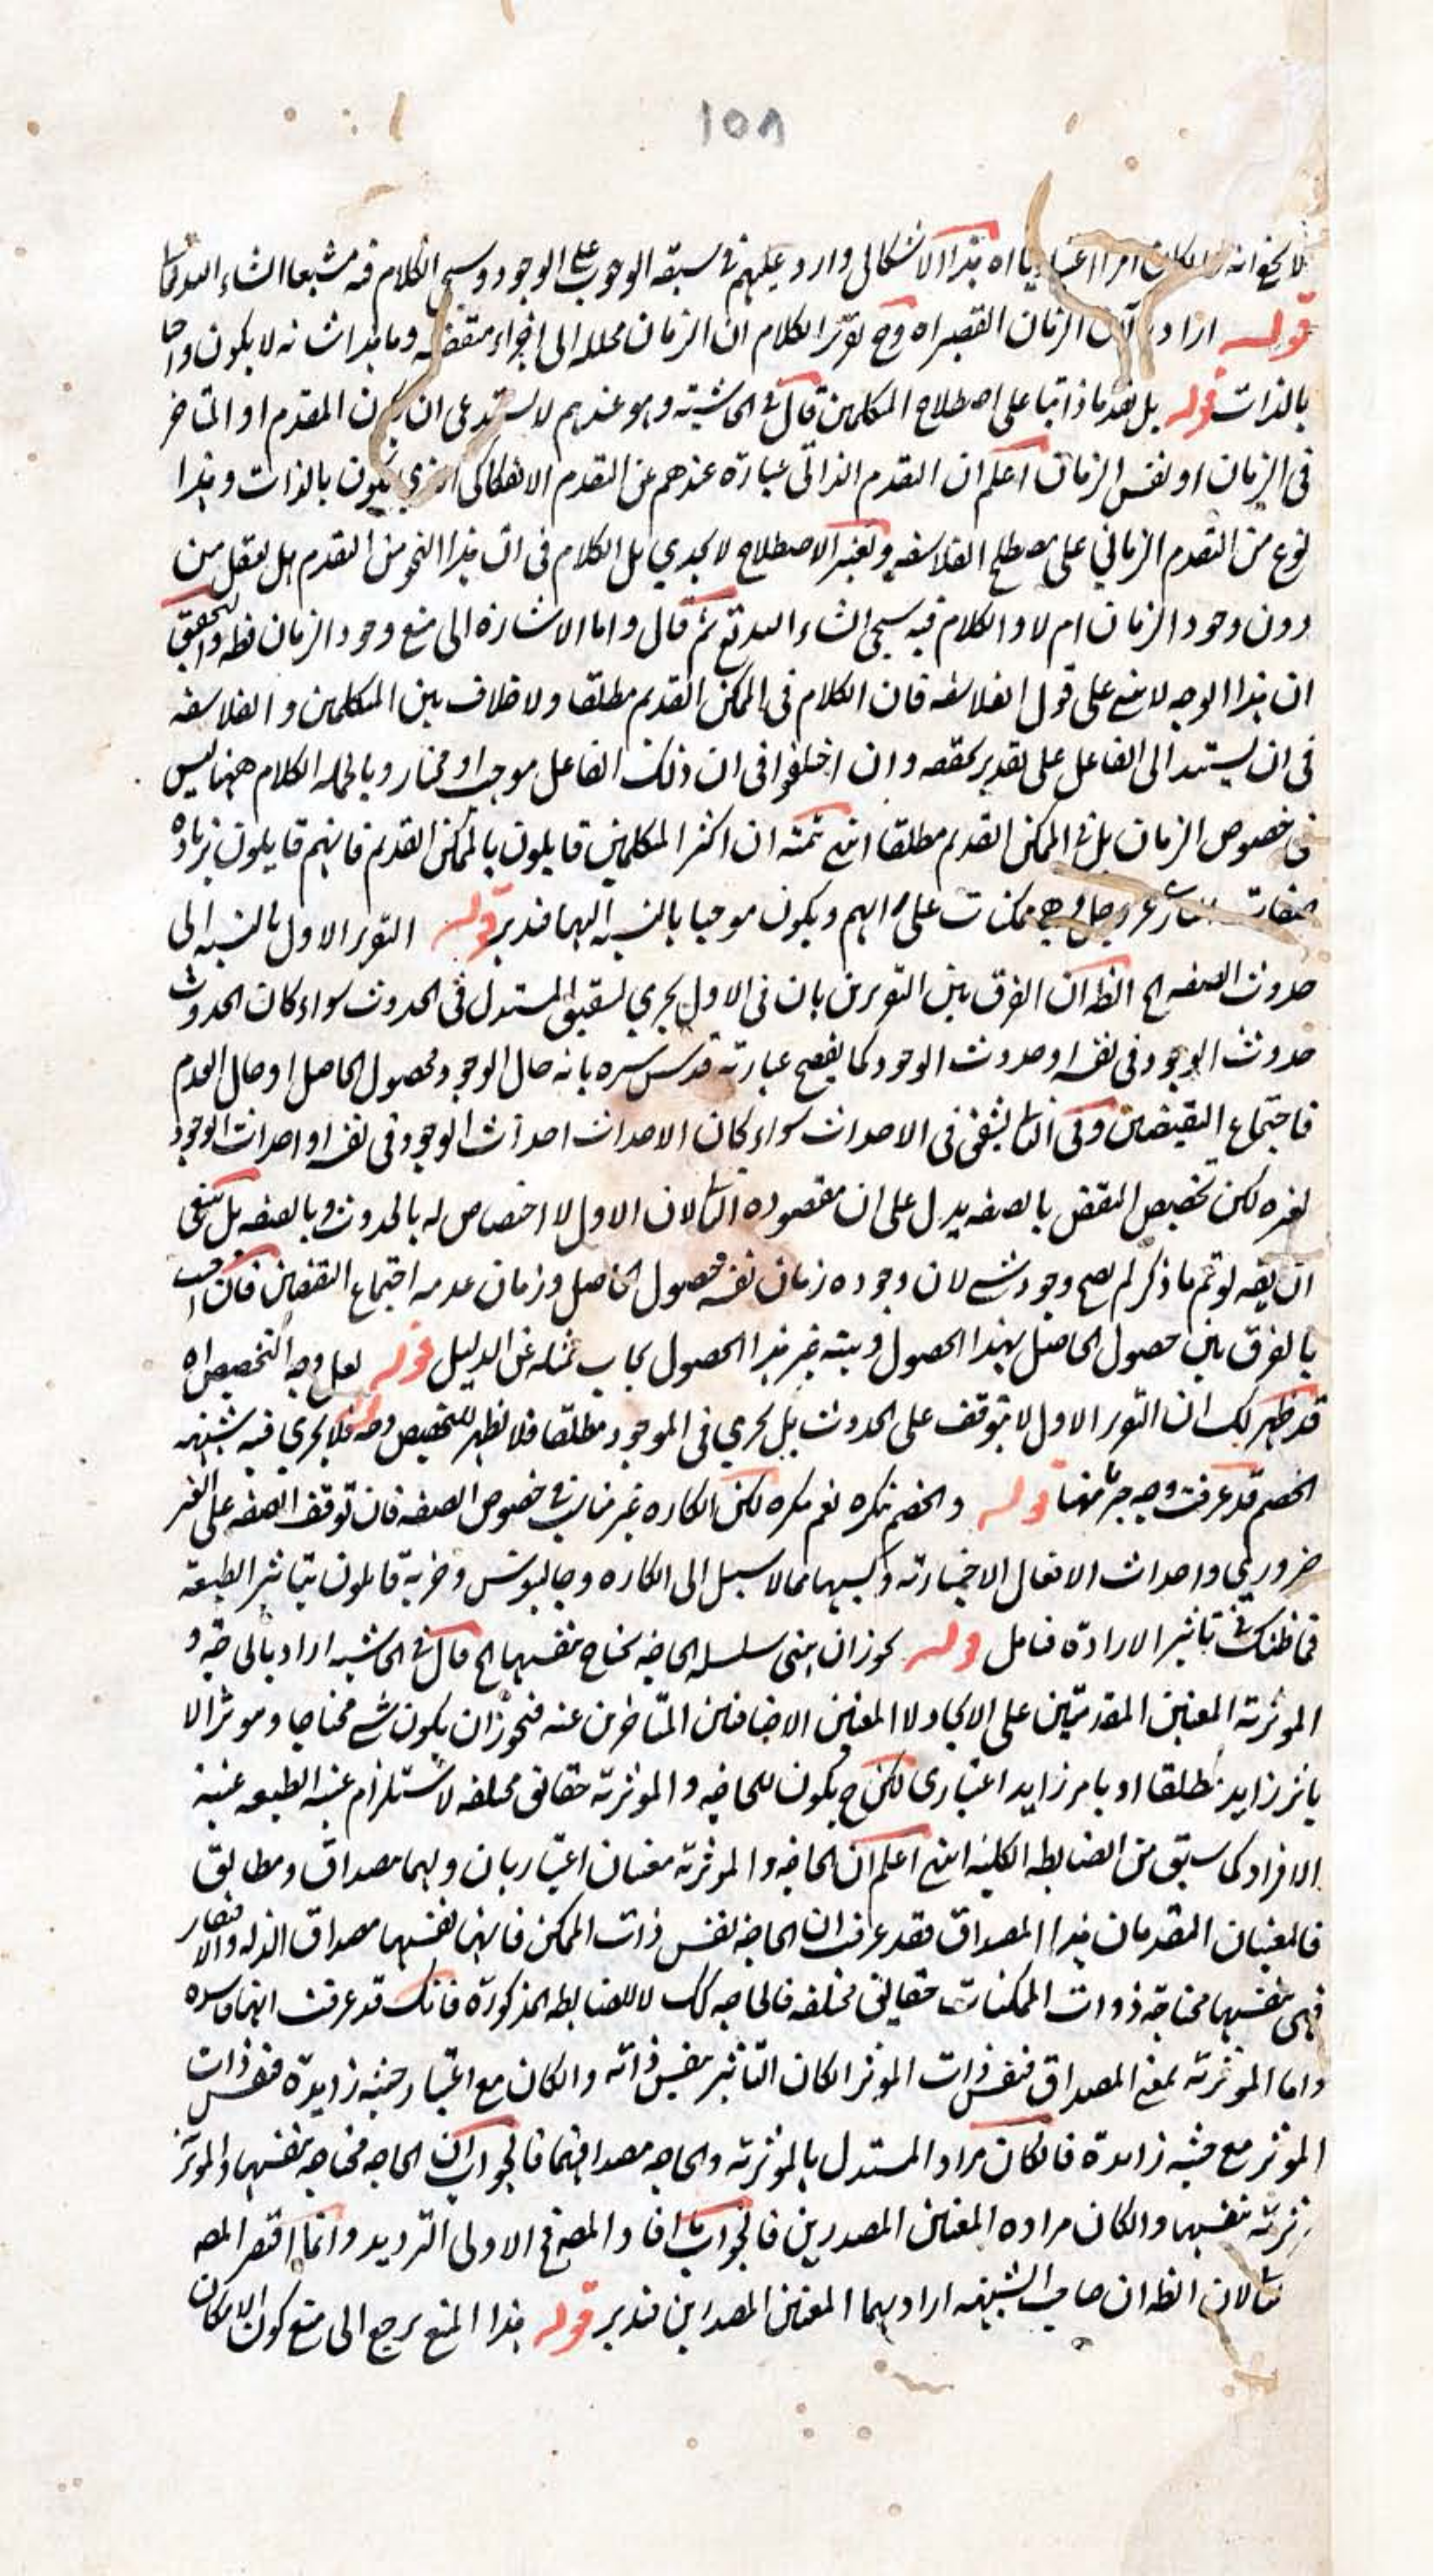 ١٥٨
لا يخفى انه وان كان امرا اعتباريا اه هذا الاشكال وارد عليهم في سبقه الوجوب على الوجود وسيجئ الكلام فيه مشبعا انشاء الله تعالى
قوله اراد الزمان القصير اه وح تقرير الكلام ان الزمان محلله الى اجزاء متقضيه وما هذا شانه لا يكون واجبا
بالذات قوله بل تقدما ذاتيا على اصطلاح المتكلمين قال في الحاشيته وهو عندهم لا يستدعى ان يكون المقدم او المتاخر
في الزمان او نفس الزمان اعلم ان التقدم الذاتي عبارة عندهم عن التقدم الانفكاكي الذي يكون بالذات وهذا
نوع من التقدم الزماني على مصطلح الفلاسفه وتغير الاصطلاح لا يجدي بل الكلام في ان هذا النحو من التقدم هل يعقل من
دون وجود الزمان ام لا والكلام فيه سيجئ انشاء الله تع ثم قال واما الاشارة الى منع وجود الزمان فظ والتحقيق
ان هذا الوجه لا يتم على قول الفلاسفه فان الكلام في الممكن القديم مطلقا ولا خلاف بين المتكلمين والفلاسفه
في ان يستند الى الفاعل على تقدير تحققه وان اختلفوا في ان ذلك الفاعل موجب او مختار وبالجمله الكلام ههنا ليس
في خصوص الزمان بل في الممكن القديم مطلقا انتهى تمته ان اكثر المتكلمين قايلون بالممكن القديم فانهم قايلون بزيادة
صفات الباري عز وجل وهي ممكنات على رايهم ويكون موجبا بالنسبه اليها فتدبر قوله التقرير الاول بالنسبه الى
حدوث الصفه الخ الظ ان الفرق بين التقريرين بان في الاول يجري تشقيق المستدل في الحدوث سواء كان الحدوث
حدوث الوجود في نفسه او حدوث الوجود كما يفصح عبارته قدس سره بانه حال الوجود فحصول الحاصل او حال العدم
فاجتماع النقيضين وفي الثا ينقض في الاحداث سواء كان الاحداث احداث الوجود في نفسه او احداث الوجود
لغيره لكن تخصيص النقض بالصفه يدل على ان مقصوده الثا لان الاول لا اختصاص له بالحدوث وبالصفه بل ينبغي
ان يقه لو تم ما ذكر لم يصح وجود شئ لان وجوده زمان نفسه حصول الحاصل وزمان عدمه اجتماع النقيضين فان اجيب
بالفرق بين حصول الحاصل بهذا الحصول وبينه غير هذا الحصول يجاب بمثله عن الدليل قوله لعل وجه التخصيص اه
قد ظهر لك ان التقرير الاول لا يتوقف على الحدوث بل يجري في الموجود مطلقا فلا يظهر للتخصيص وجه قوله فلا يجري فيه شبهه
الخصم قد عرفت وجه جريانها قوله والخصم ينكره نعم ينكره لكن انكاره غير مناف في خصوص الصفه فان توقف الصفه على الغير
ضروري واحداث الافعال الاختيارته وكسبها مما لا سبيل الى انكاره وجالينوس وحزبه قايلون بتاثير الطبيعه
فما ظنك في تاثير الارادة فتامل قوله يجوز ان ينتهى سلسله الحاجه بحتاج بنفسها الخ قال في الحاشيه اراد بالحاجه و
الموثرته المعنيين المقدمين على الايجاد لا المعنيين الاضافيين المتاخرين عنه فيجوز ان يكون شئ محتاجا وموثرا لا
بامر زايد مطلقا او بامر زايد اعتبارى لكن ح يكون للحاجه والموثرته حقائق مختلفه لاستلزام عينيه الطبيعه عينيه
الافراد كما سبق من الضابطه الكليه انتهى اعلم ان الحاجه والموثرته معنيان اعتباريان ولهما مصداق ومطابق
فالمعنيان المقدمان هذا المصداق فقد عرفت ان الحاجه نفس ذات الممكن فانها نفسها مصداق الذله والافتقار
فهي بنفسها محتاجه ذوات الممكنات حقايق مختلفه فالحاجه كك لا للضابطه المذكورة فانك قد عرفت انها فاسده
واما الموثرته بمعنى المصداق فنفس ذات الموثر ان كان التاثير بنفس ذاته وان كان مع اعتبار حيثيه زايدة فنفس ذات
الموثر مع حيثيه زايدة فان كان مراد المستدل بالموثرته والحاجه مصداقهما فالجواب ان الحاجه محتاجه بنفسها والموثر
ثرته بنفسها وان كان مراده المعنيين المصدرين فالجواب ما افاد المص في الاولى الترديد وانما اقتصر المصه
لان الظ ان صاحب الشبهه اراد بهما المعنيين المصدرين فتدبر قوله هذا المنع يرجع الى منع كون الامكان